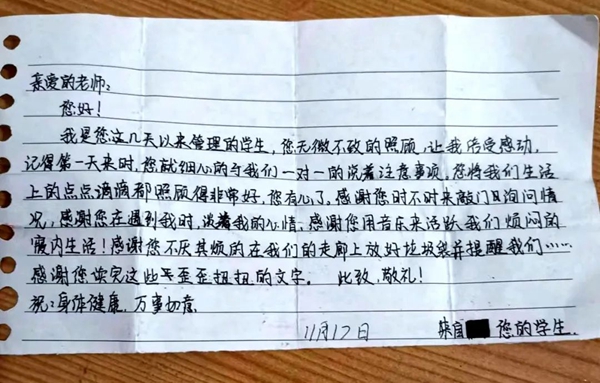 亲爱的老师:
您好!
我是您这几天以来管理的学生,您无微不致的照顾,让我倍受感动,
记得第一天来时,您就细心的与我们一对一的说着注意事项,您将我们生活
上的点点滴滴都照顾得非常好,您有心了。感谢您时不时来敲门且询问情
况,感谢您在遇到我时,谈着我的心情,感谢您用音乐来活跃我们烦闷的
寝内生活!感谢您不厌其烦的在我们的走廊上放好垃圾袋并提醒我们……
感谢您读完这些歪歪扭扭的文字。 此致,敬礼!
祝:身体健康,万事如意。
11月17日 来自 您的学生.